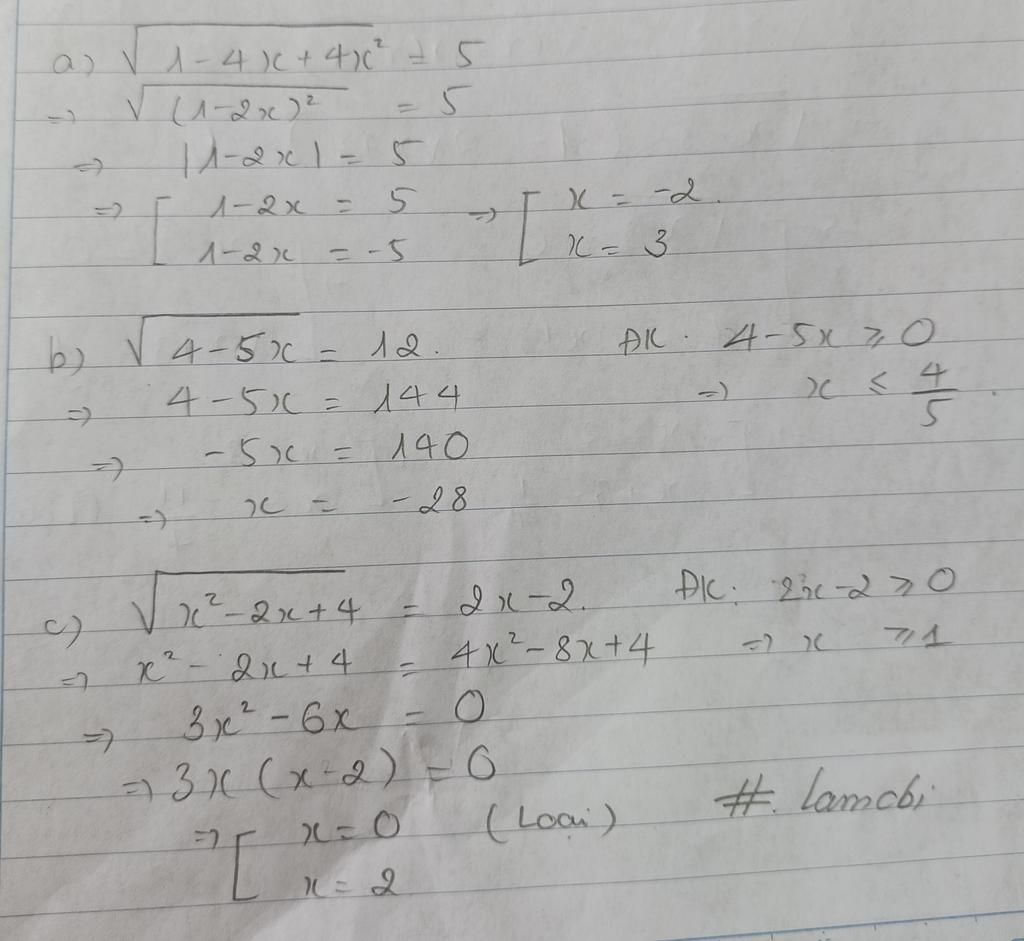 a) √(1-4x+4x²) = 5
=> √((1-2x)²) = 5
=> |1-2x| = 5
=> [ 1-2x = 5 => [ x = -2.
1-2x = -5 x = 3
b) √(4-5x) = 12. ĐK. 4-5x ≥ 0
=> 4-5x = 144 => x ≤ 4/5.
=> -5x = 140
=> x = -28
c) √(x²-2x+4) = 2x-2. ĐK: 2x-2 ≥ 0
=> x²-2x+4 = 4x²-8x+4 => x ≥ 1
=> 3x²-6x = 0
=> 3x(x-2) = 0
=> [ x = 0 (Loại) #. lamchi
x = 2